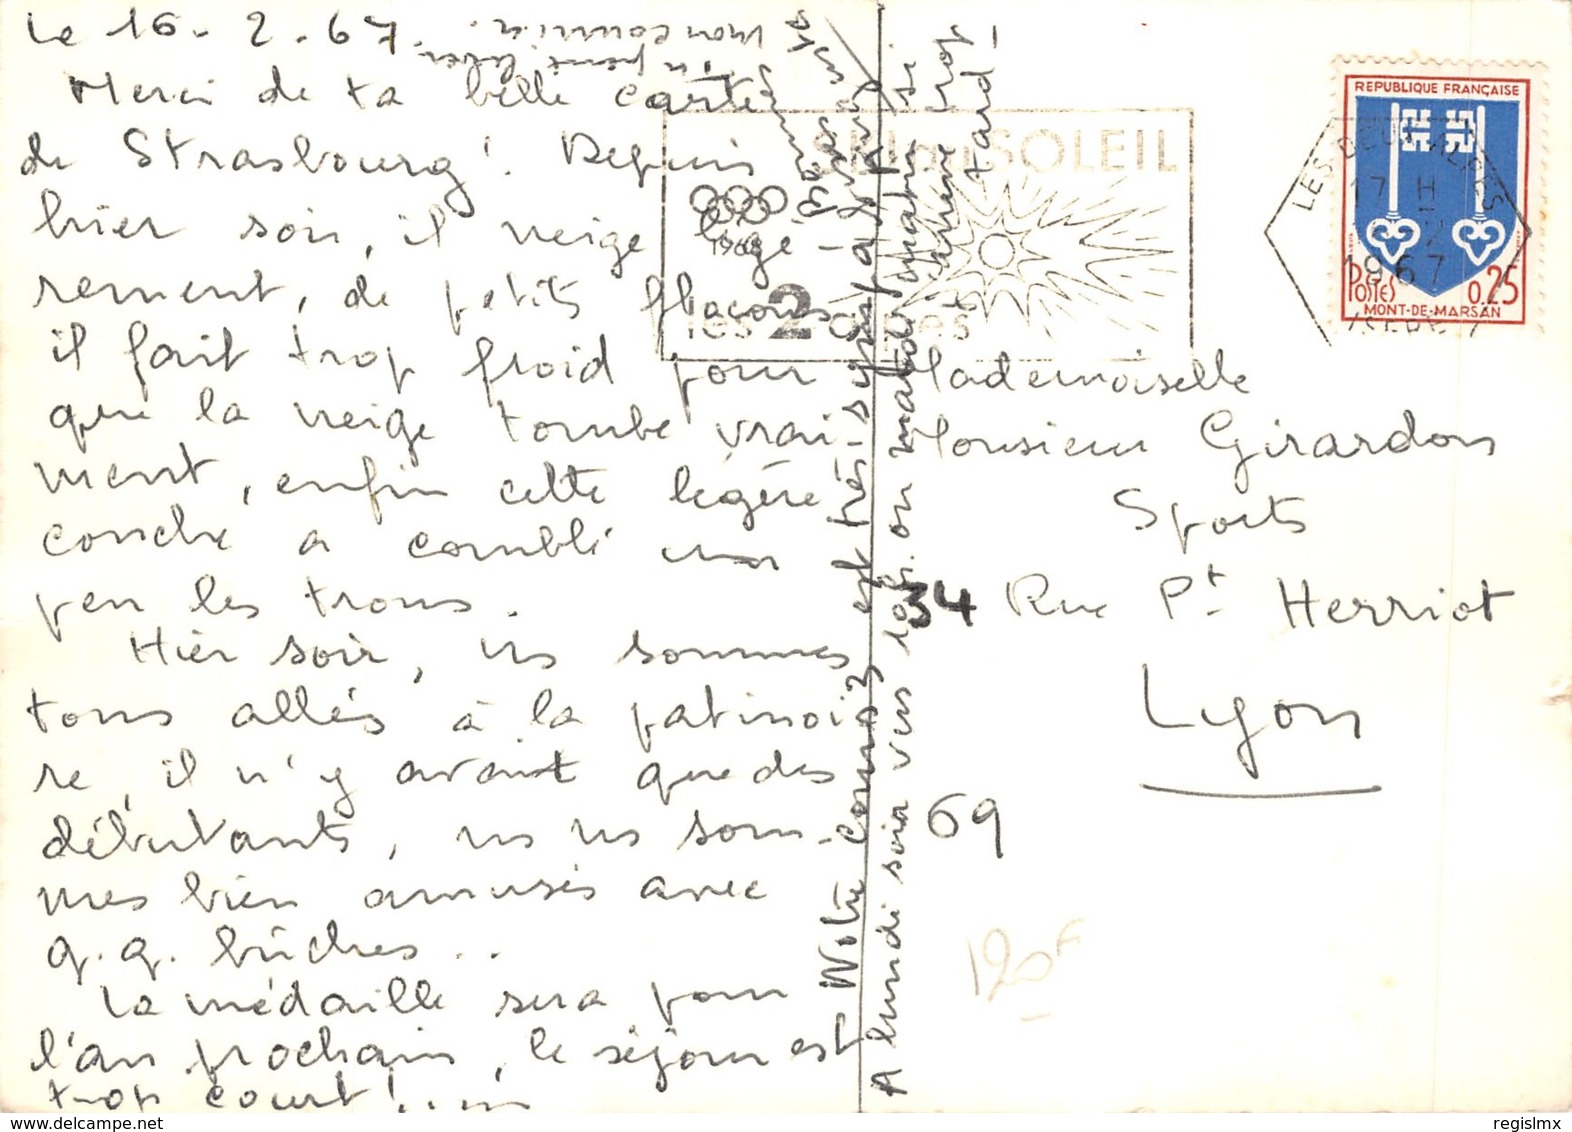 Le 16-2-67.
Merci de ta belle carte
de Strasbourg! Depuis
hier soir, il neige légè-
rement, de petits flocons
il fait trop froid pour
que la neige tombe vrai-
ment, enfin cette légère
couche a comblé un
peu les trous.
Hier soir, ns sommes
tous allés à la patinoi
re, il n'y avait que des
débutants, ns ns som-
mes bien amusés avec
q.q. bûches..
La médaille sera pour
l'an prochain, le séjour est
trop court!...
Notre cousin est très sympa
A lundi soir vers 10h. ou mardi matin si
j'arrive trop
tard
mon courrier.
SOLEIL
1968
les 2 alpes
REPUBLIQUE FRANÇAISE
POSTES 0.25
MONT-DE-MARSAN
LES DEUX ALPES
17 H
1967
ISERE
Mademoiselle
Monsieur Girardon
Sports
34 Rue Pt Herriot
Lyon
69
120F
www.delcampe.net
regislmx